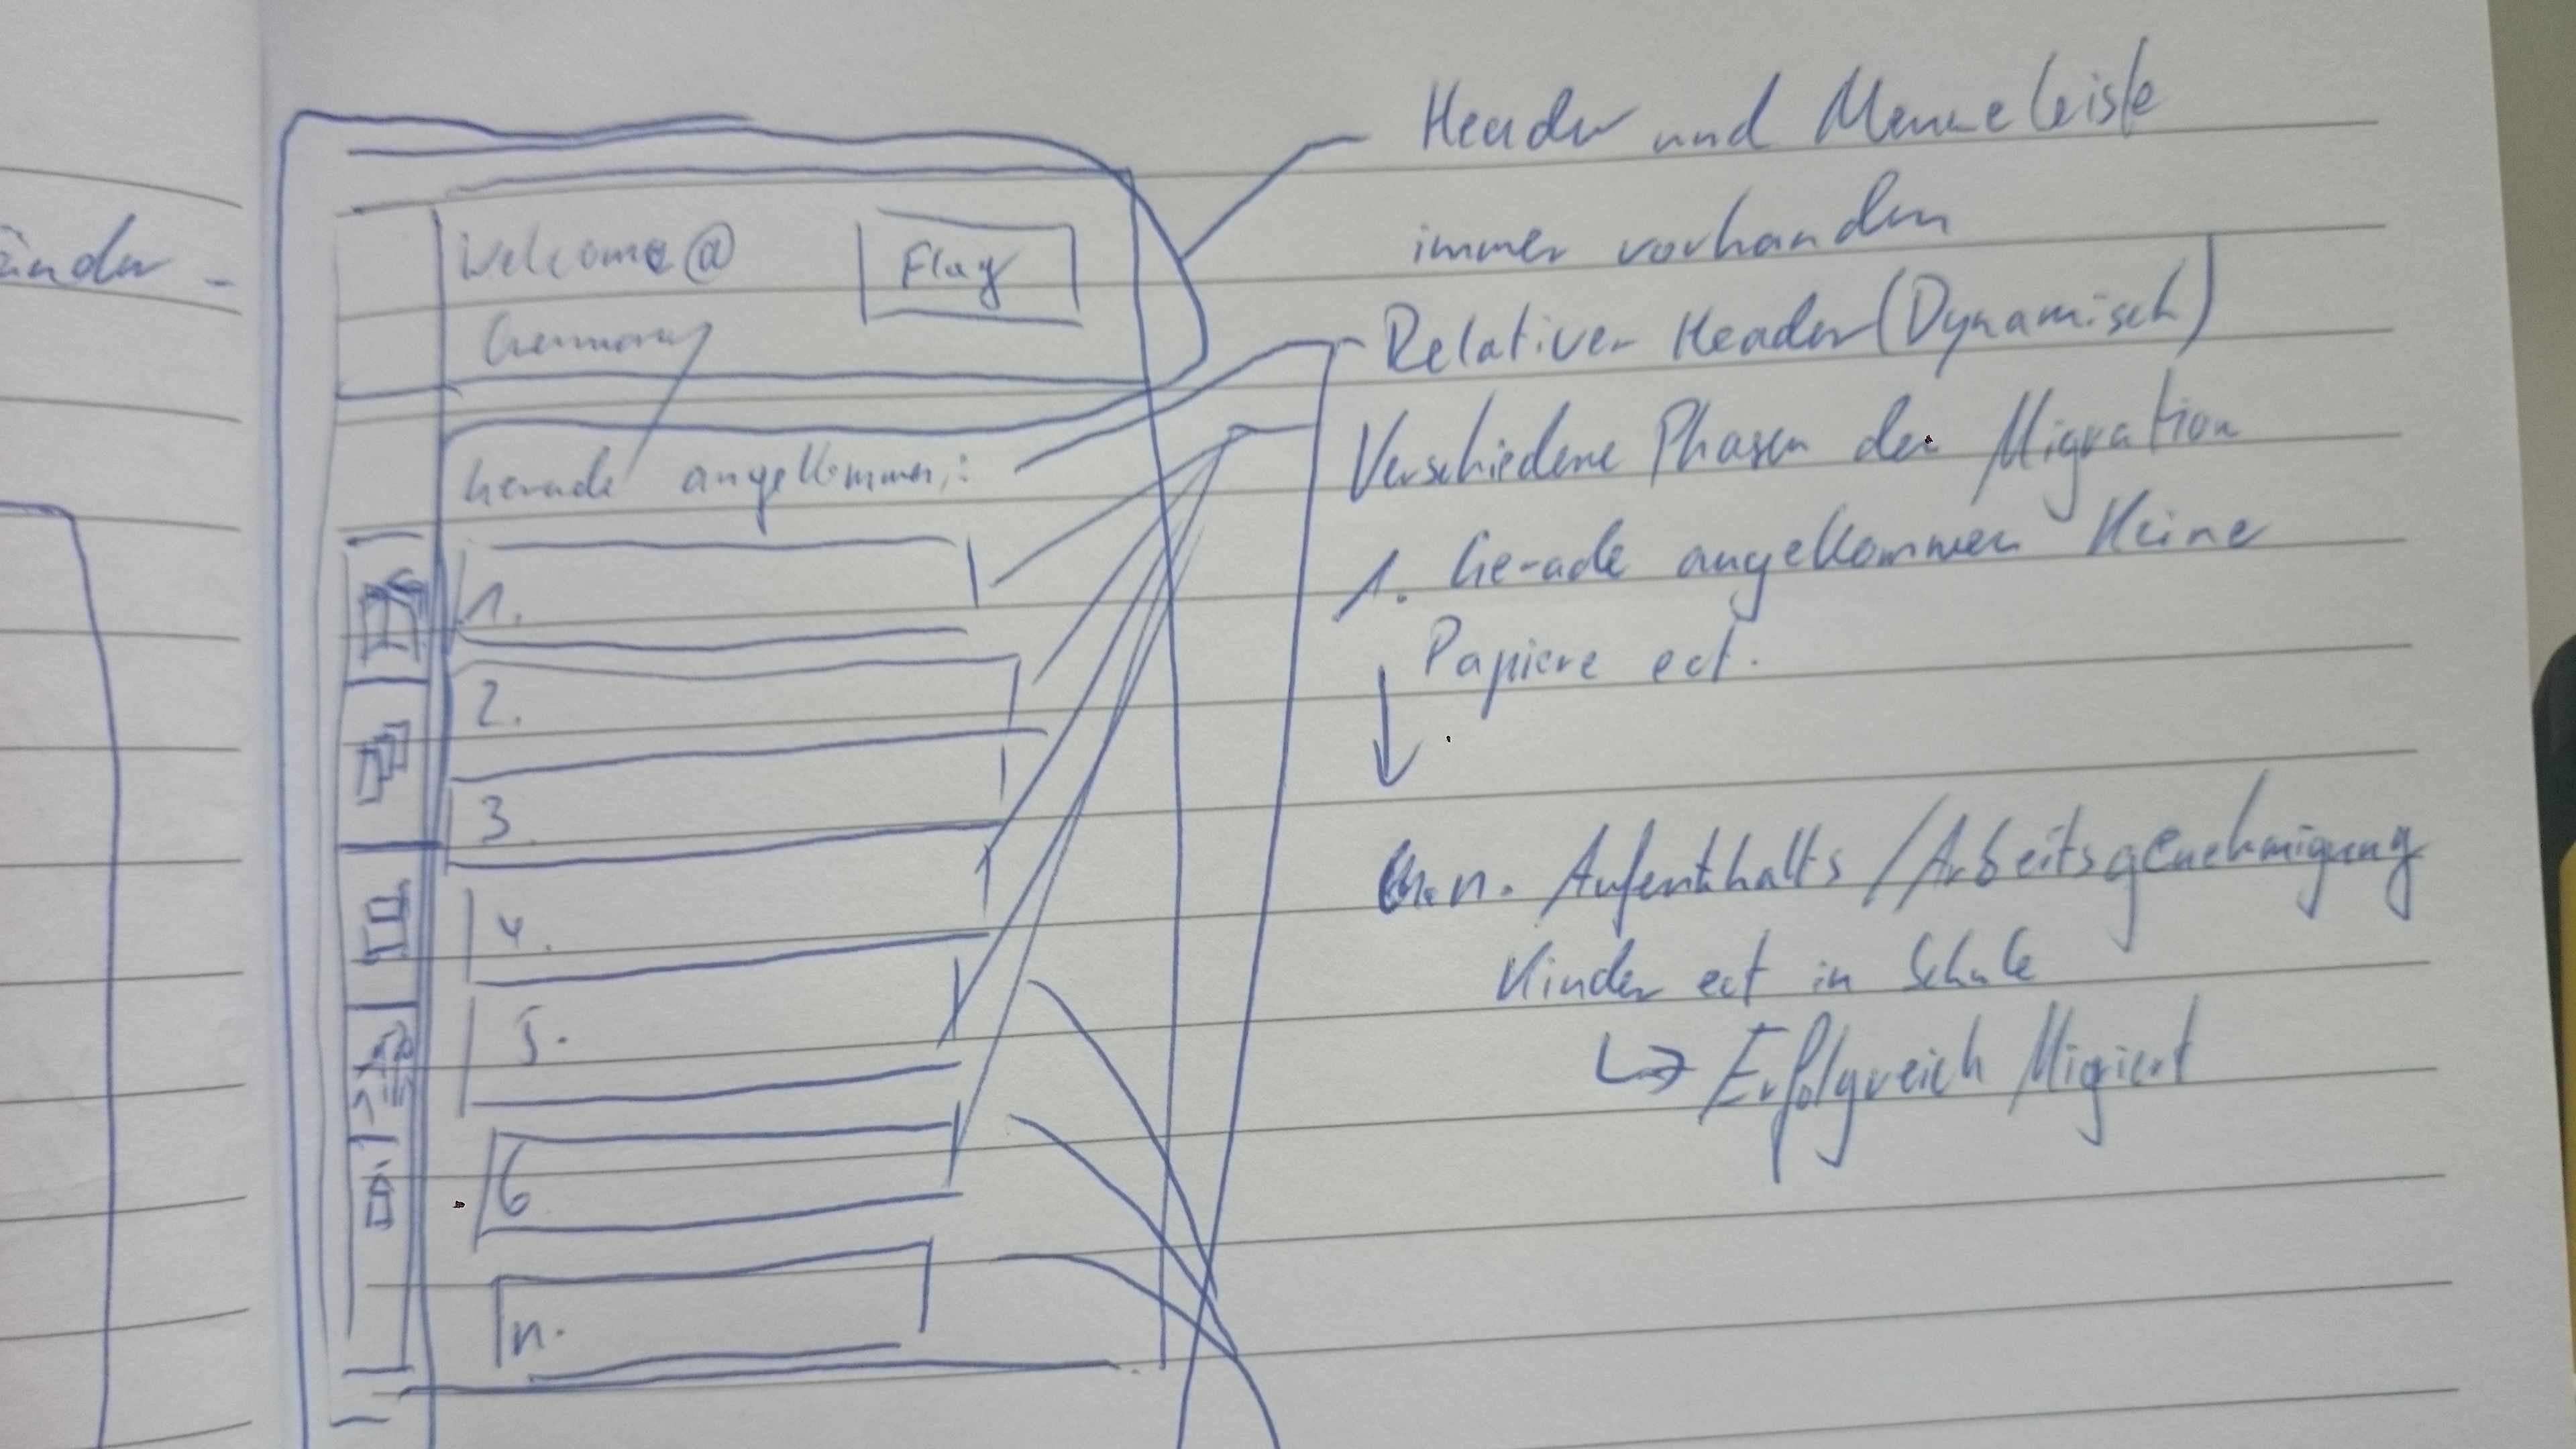 änder -
Welcome @
Germany
Flag
Gerade angekommen:
1.
2.
3.
4.
5.
6
n.
Header und Menueleiste
immer vorhanden
Relativer Header (Dynamisch)
Verschiedene Phasen der Migration
1. Gerade angekommen Keine
Papiere ect.
n. Aufenthalts / Arbeitsgenehmigung
Kinder ect in Schule
↳ Erfolgreich Migriert